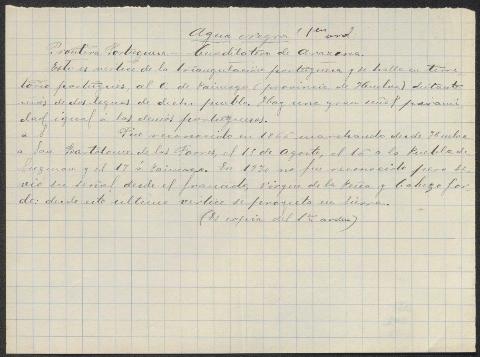 Agua negra 1er ord
Frontera Portuguesa — Cuadilatera de Aracena.
Este es vertice de la triangulación portuguesa y se halla en terri-
torio portugués, al O. de Paimogo (provincia de Huelva) distante
unas dos leguas de dicho pueblo. Hay una gran señal pirami-
dal igual á las demás portuguesas.
Fué reconocido en 1865 marchando desde Huelva
a San Bartolomé de las Torres, el 13 de Agosto, el 15 a la Puebla de
Guzman y el 17 á Paimogo. En 1920 no fue reconocido pero se
vió su señal desde el granado, Virgen de la Peña y Cabezo Gor-
do: desde este ultimo vertice se proyecta en tierra.
(Es copia del 1er orden)